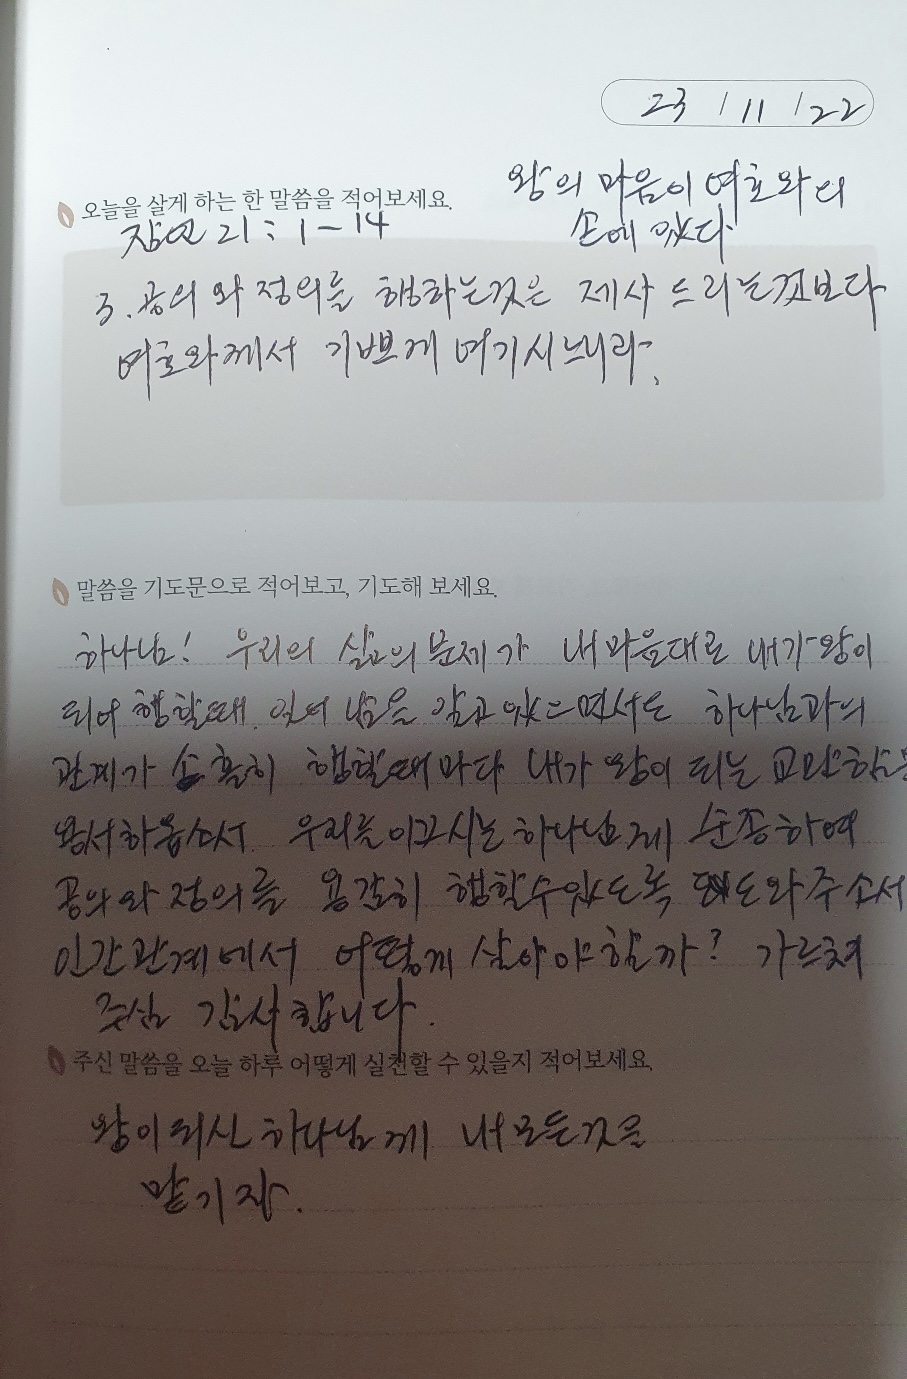 23 / 11 / 22
왕의 마음이 여호와의
손에 있다
오늘을 살게 하는 한 말씀을 적어보세요.
잠언 21 : 1 - 14
3. 공의와 정의를 행하는것은 제사 드리는것보다
여호와께서 기쁘게 여기시느니라.
말씀을 기도문으로 적어보고, 기도해 보세요.
하나님! 우리의 삶의 문제가 내마음대로 내가 왕이
되어 행할때 있음을 알고 있으면서도 하나님과의
관계가 소홀히 행할때마다 내가 왕이 되는 교만함을
용서하옵소서. 우리를 이끄시는 하나님께 순종하여
공의와 정의를 용감히 행할수있도록 도와주소서
인간관계에서 어떻게 살아야 할까? 가르쳐
주심 감사합니다.
주신 말씀을 오늘 하루 어떻게 실천할 수 있을지 적어보세요.
왕이 되신 하나님께 내 모든것을
맡기자.